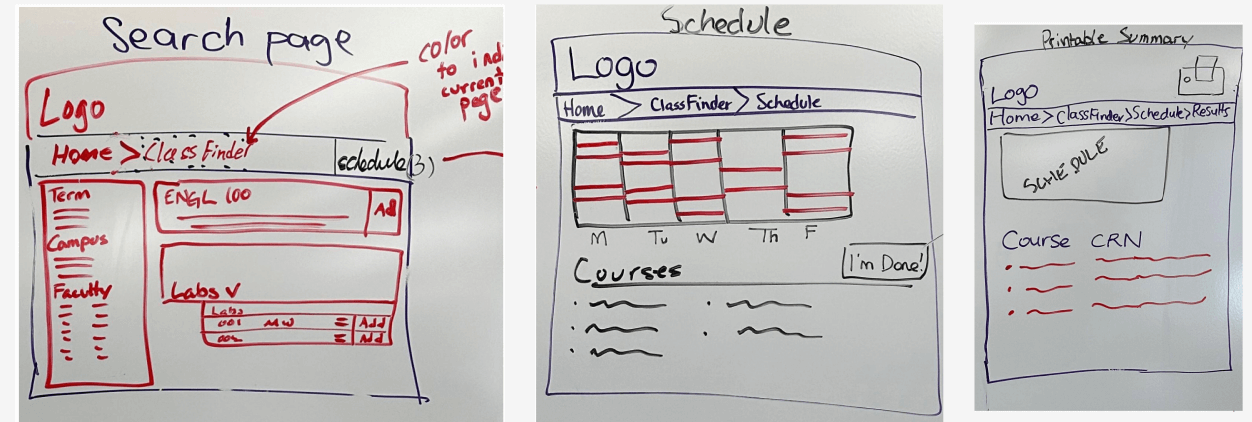 Search page
color
to ind
current
page
Logo
Home > Class Finder
schedule (3)
Term
Campus
Faculty
ENGL 100
Ad
Labs v
Labs
001 MW Add
002 Add
Schedule
Logo
Home > ClassFinder > Schedule
M Tu W Th F
I'm Done!
Courses
Printable Summary
Logo
Home > ClassFinder > Schedule > Results
SCHEDULE
Course CRN